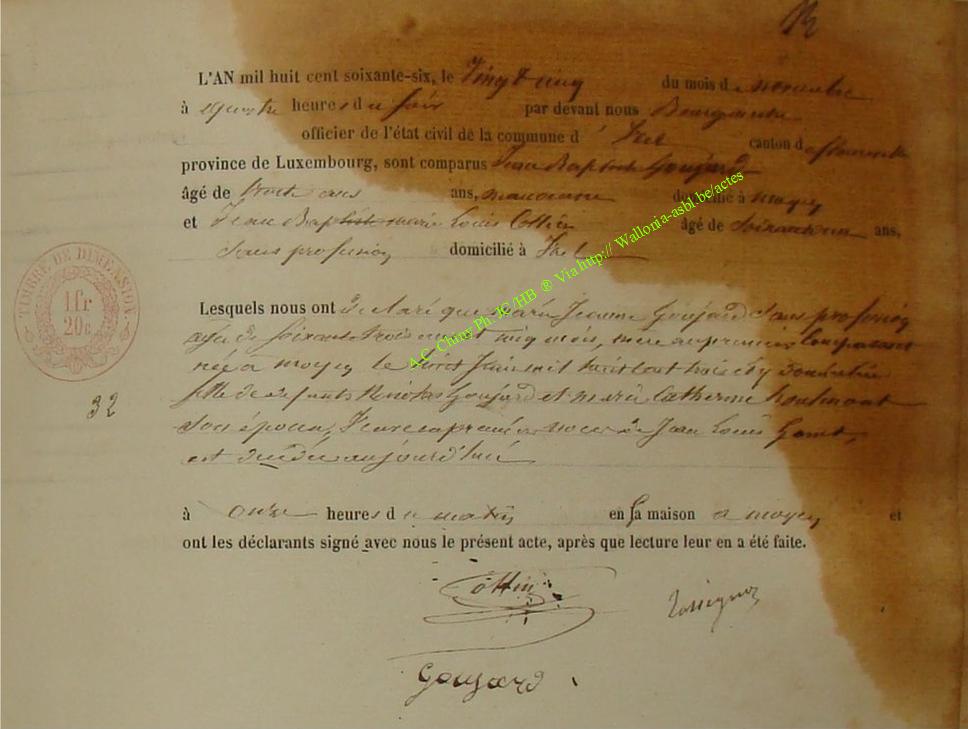 L'AN mil huit cent soixante-six, le Vingt cinq du mois d e novembre
à quatre heures du soir par devant nous Bourgmestre
officier de l'état civil de la commune d' Izel canton d e florenville
province de Luxembourg, sont comparus Jean Baptiste Goujard
âgé de trente ans ans, domicilié à moyen
et Jean Baptiste marie Louis Ottin âgé de Soixante ans,
Sans profession domicilié à Izel
Lesquels nous ont déclaré que marie Jeanne Goujard Sans profession
agée de Soixante trois ans et cinq mois, mère au premier Comparant
née à moyen le vingt Juin mil huit cent trois et y domiciliée
fille de défunts Nicolas Goujard et marie Catherine
Son épouse, Veuve en premières noces de Jean Louis
est décédée aujourd'hui
à onze heures du matin en Sa maison a moyen et
ont les déclarants signé avec nous le présent acte, après que lecture leur en a été faite.
TIMBRE DE DIMENSION
1 fr
20 c
32
Ottin
Rossignon
Goujard
A.C. Chiny Ph. JC/HB ® Via http:// Wallonia-asbl.be/actes